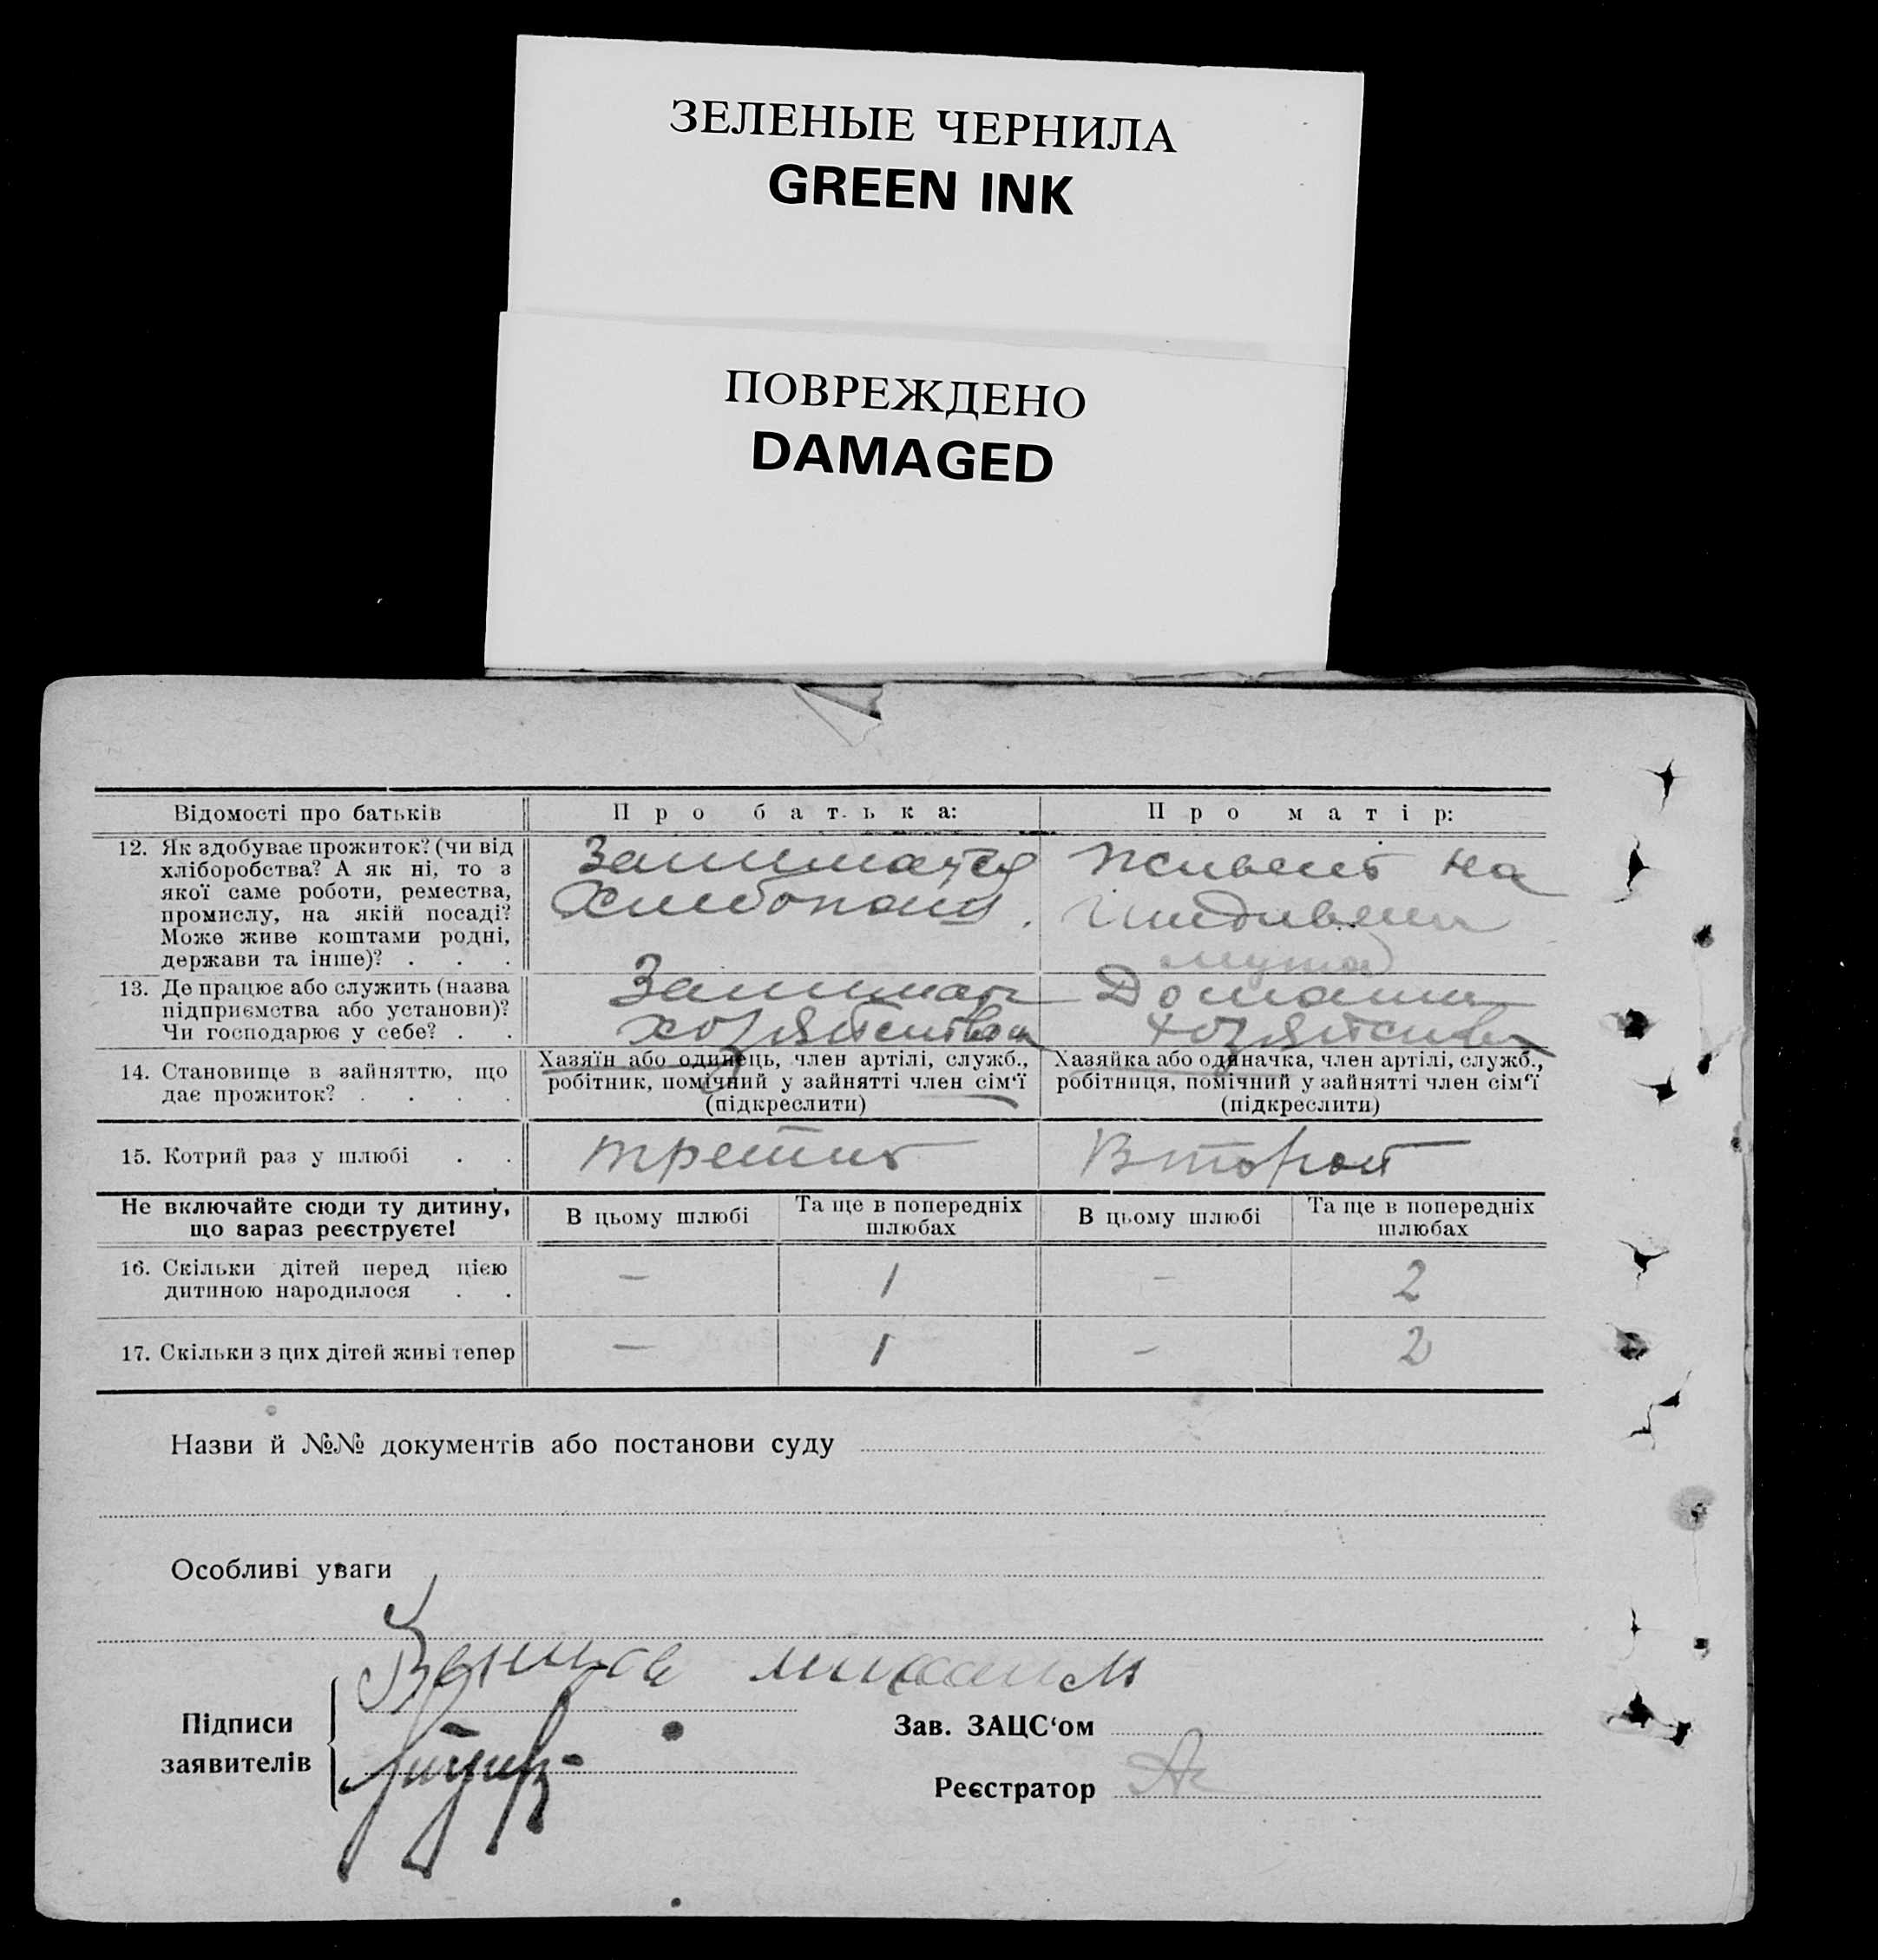 ЗЕЛЕНЫЕ ЧЕРНИЛА
GREEN INK
ПОВРЕЖДЕНО
DAMAGED
Відомості про батьків
Про батька:
Про матір:
12. Як здобуває прожиток? (чи від
хліборобства? А як ні, то з
якої саме роботи, ремества,
промислу, на якій посаді?
Може живе коштами родні,
держави та інше)? . . .
Занимается
Хлебопаш.
живет на
Иждивении
мужа
13. Де працює або служить (назва
підприємства або установи)?
Чи господарює у себе? . .
Занимает
Домашн
14. Становище в зайняттю, що
дає прожиток? . . . .
Хазяїн або одинець, член артілі, служб.,
робітник, помічний у зайнятті член сім‘ї
(підкреслити)
Хазяйка або одиначка, член артілі, служб.,
робітниця, помічний у зайнятті член сім‘ї
(підкреслити)
15. Котрий раз у шлюбі . .
третий
Второй
Не включайте сюди ту дитину,
що зараз реєструєте!
В цьому шлюбі
Та ще в попередніх
шлюбах
В цьому шлюбі
Та ще в попередніх
шлюбах
16. Скільки дітей перед цією
дитиною народилося . .
— 1 — 2
17. Скільки з цих дітей живі тепер
— 1 — 2
Назви й №№ документів або постанови суду
Особливі уваги
Підписи
заявителів
Зав. ЗАЦС‘ом
Реєстратор